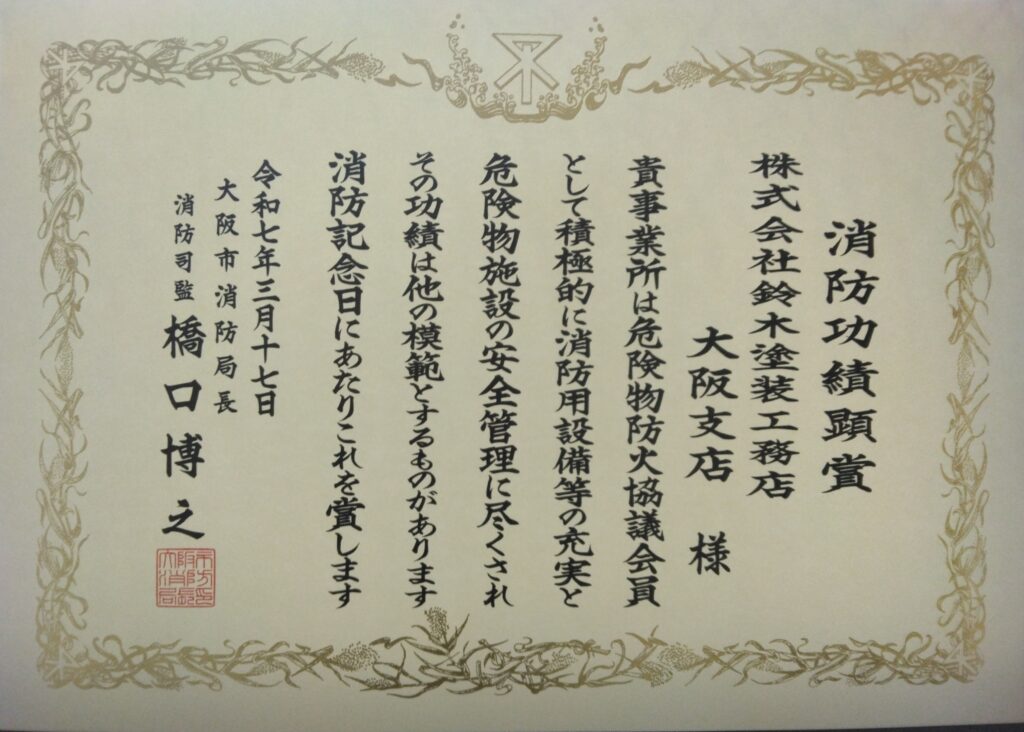 消防功績顕賞
株式会社鈴木塗装工務店
大阪支店 様
貴事業所は危険物防火協議会員
として積極的に消防用設備等の充実と
危険物施設の安全管理に尽くされ
その功績は他の模範とするものがあります
消防記念日にあたりこれを賞します
令和七年三月十七日
大阪市消防局長
消防司監 橋口博之